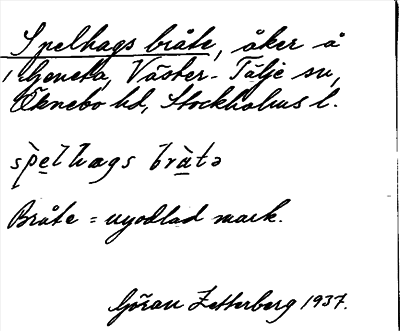 Spelhags bråte, åker å
Geneta, Väster-Tälje sn,
Öknebo hd, Stockholms l.
spelhags bràtə
Bråte = nyodlad mark.
Göran Zetterberg 1937.